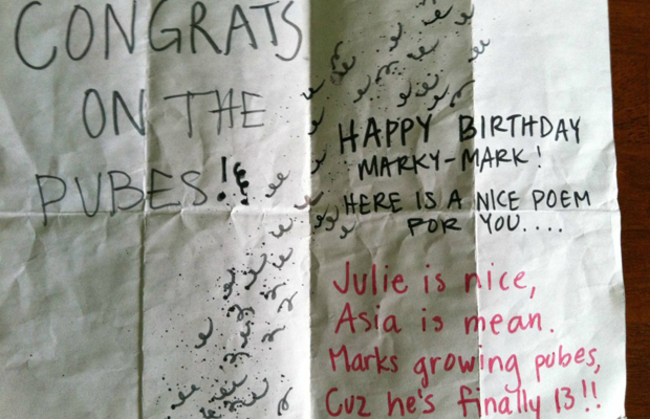 CONGRATS
ON THE
PUBES!
HAPPY BIRTHDAY
MARKY-MARK!
HERE IS A NICE POEM
FOR YOU....
Julie is nice,
Asia is mean.
Marks growing pubes,
Cuz he's finally 13!!